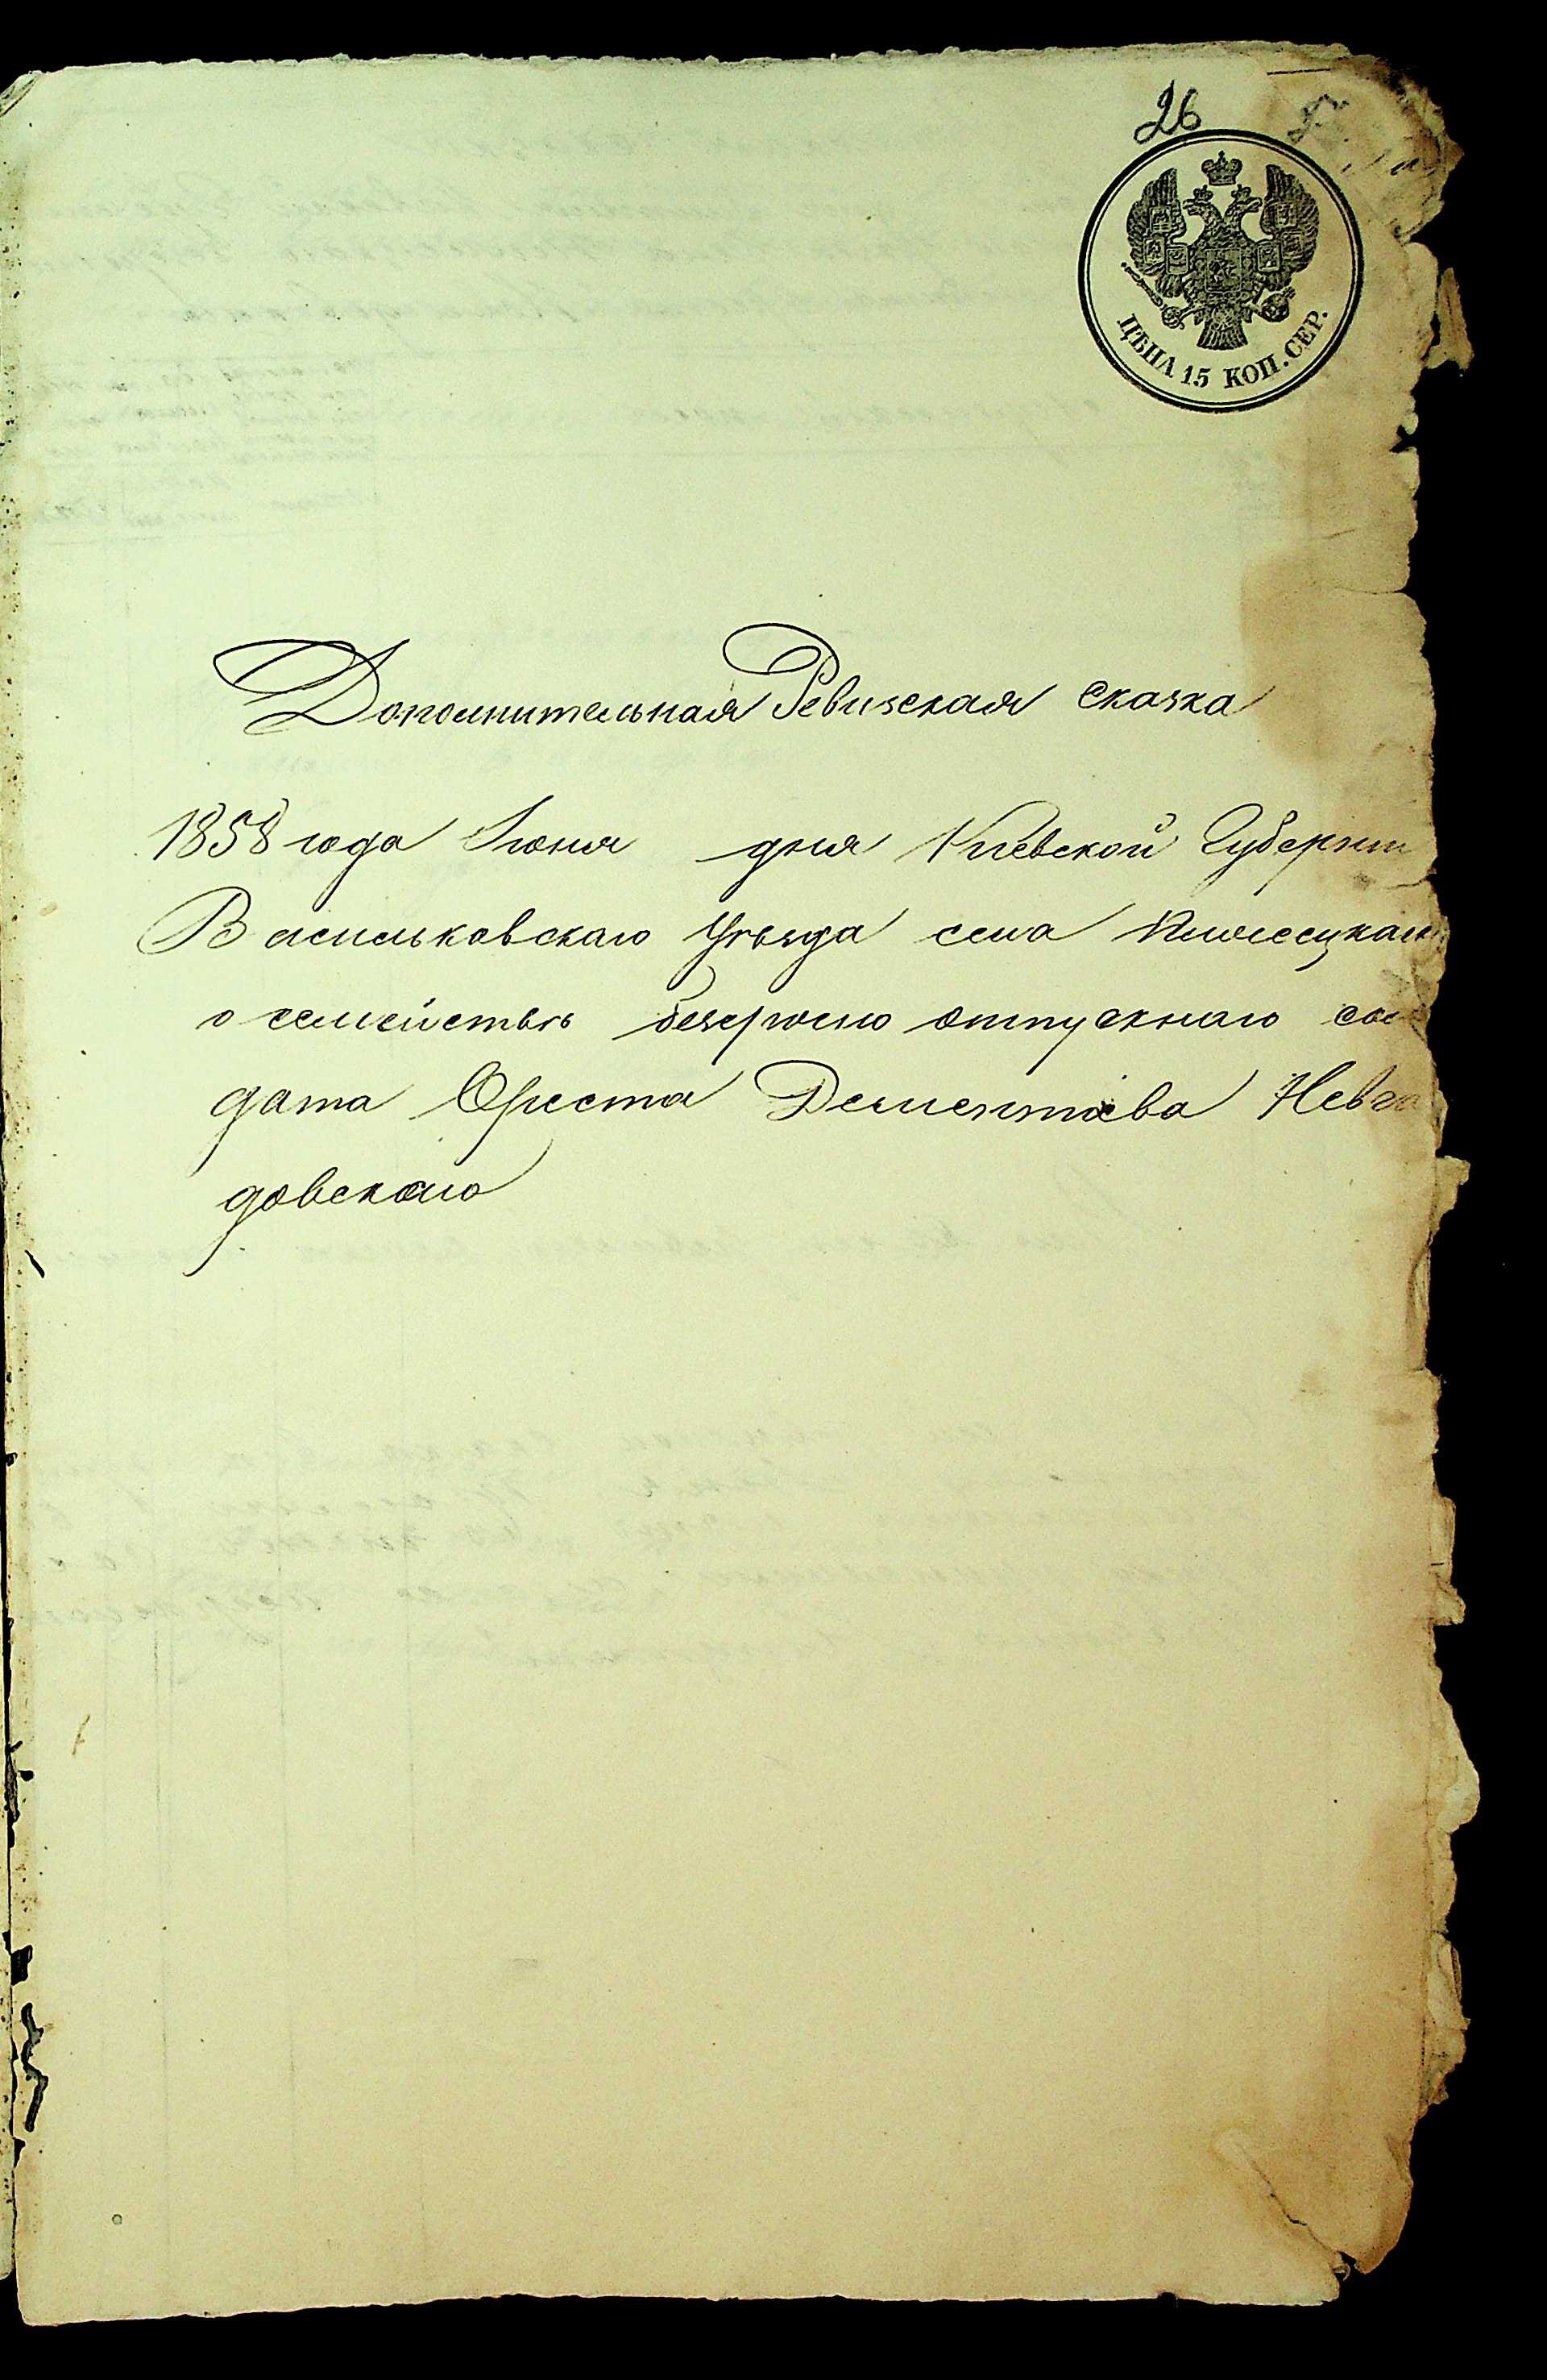 26
ЦѢНА 15 КОП. СЕР.
Дополнительная Ревизская сказка
1858 года Июня дня Кіевской Губерніи
Васильковскаго Уѣзда села Плисецкаго
о семействѣ безсрочно отпускнаго сол
дата Ореста Дементіева Невга
довскаго